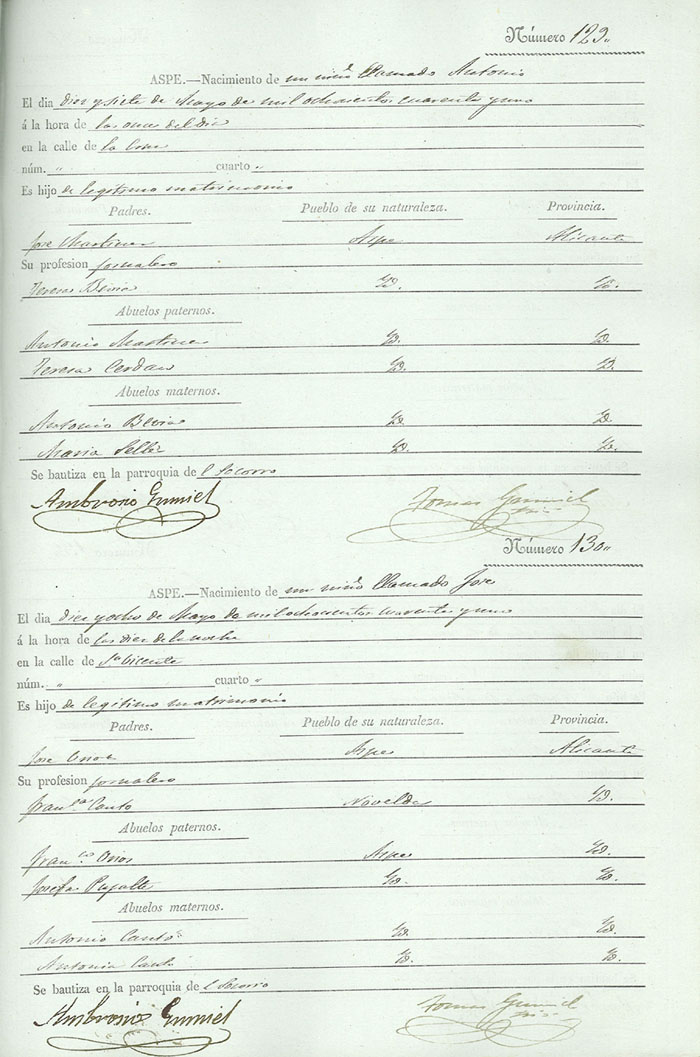 Número 129„
ASPE.—Nacimiento de un niño llamado Antonio
El dia diez y siete de Mayo de mil ochocientos cuarenta y uno
á la hora de las once del dia
en la calle de la
núm. „ cuarto „
Es hijo de legitimo matrimonio
Padres. Pueblo de su naturaleza. Provincia.
Jose Martinez Aspe Alicante
Su profesion jornalero
Teresa Bevia Yd. Yd.
Abuelos paternos.
Antonio Martinez Yd. Yd.
Teresa Cerdan Yd. Yd.
Abuelos maternos.
Antonio Bevia Yd. Yd.
Maria Selles Yd. Yd.
Se bautiza en la parroquia del Socorro
Ambrosio Gumiel Tomas Gumiel
Número 130„
ASPE.—Nacimiento de un niño llamado Jose
El dia diez y ocho de Mayo de mil ochocientos cuarenta y uno
á la hora de las diez de la noche
en la calle de Sn. Vicente
núm. „ cuarto „
Es hijo de legitimo matrimonio
Padres. Pueblo de su naturaleza. Provincia.
Jose Aspe Alicante
Su profesion jornalero
Franca. Canto Novelda Yd.
Abuelos paternos.
Franco. Aspe Yd.
Josefa Pujalte Yd. Yd.
Abuelos maternos.
Antonio Canto Yd. Yd.
Antonia Canto Yd. Yd.
Se bautiza en la parroquia del Socorro
Ambrosio Gumiel Tomas Gumiel